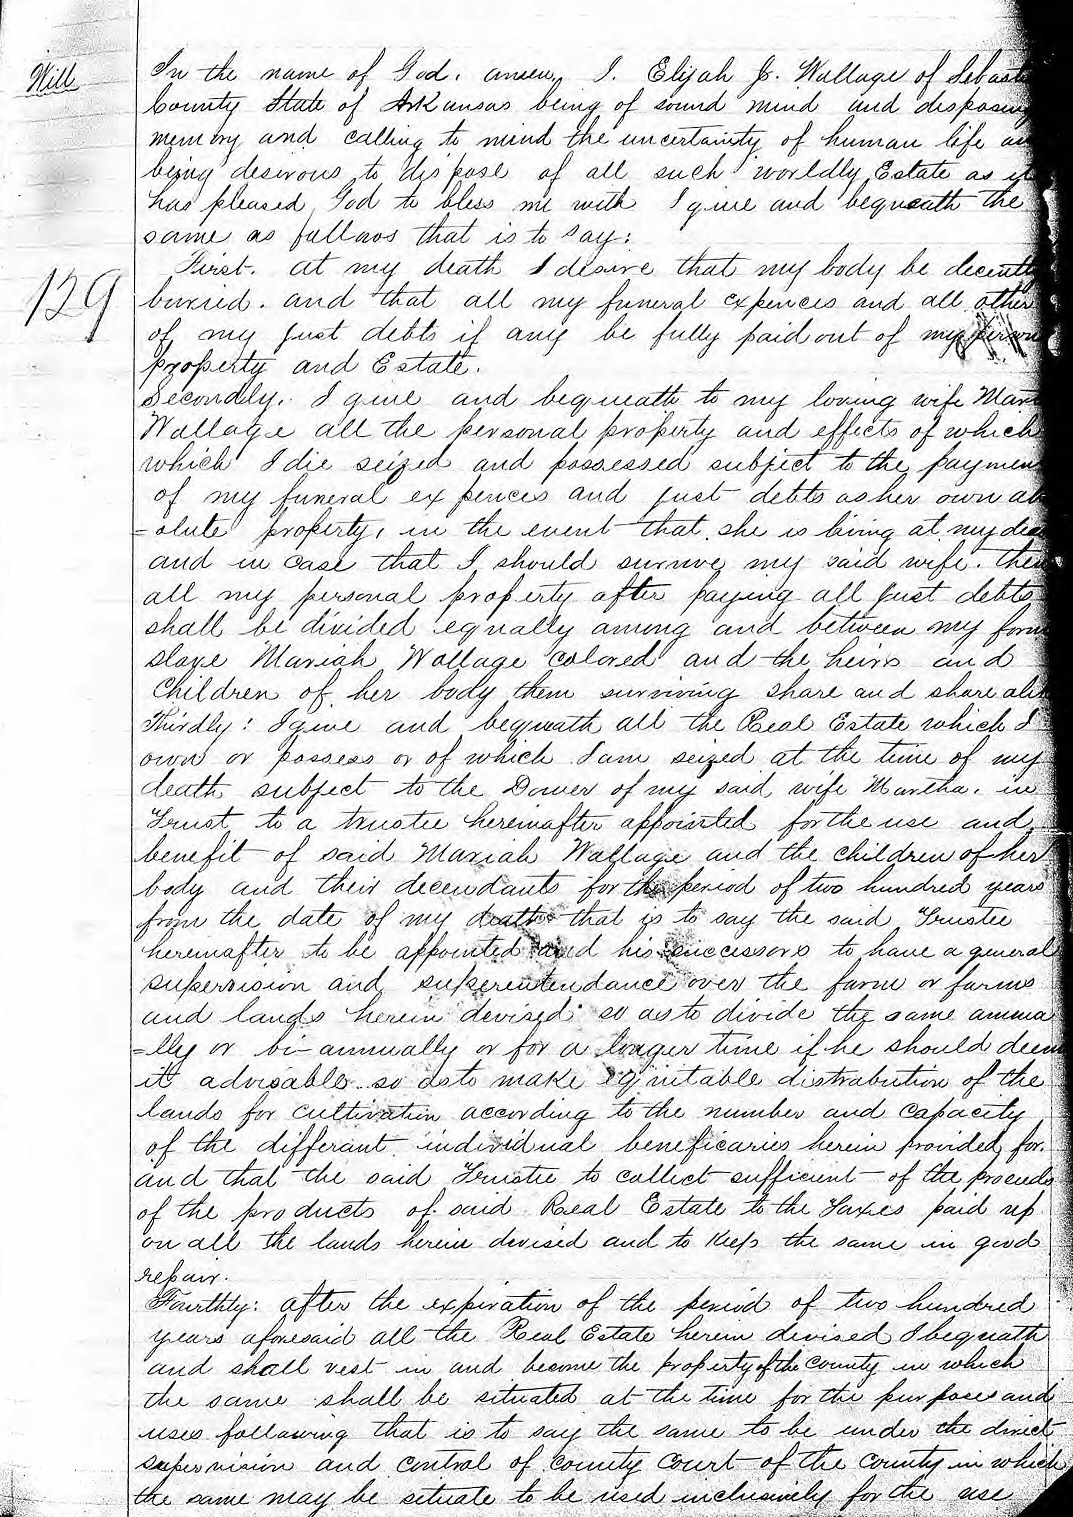 Will
In the name of God. amen, I. Elijah J. Wallage of Sebast
County State of Arkansas being of sound mind and disposing
memory and calling to mind the uncertainity of human life an
being desirous to dispose of all such worldly Estate as it
has pleased God to bless me with I give and bequeath the
same as fallows that is to say:
129
First. at my death I desire that my body be decently
buried. and that all my funeral expences and all other
of my just debts if any be fully paid out of my person
property and Estate.
Secondly. I give and bequeath to my loving wife Mart
Wallage all the personal property and effects of which
which I die seized and possessed subject to the paymen
of my funeral expences and just debts as her own ab
=olute property, in the event that she is living at my dea
and in case that I should survive my said wife. then
all my personal property after paying all just debts
shall be divided equally among and between my form
slave Mariah Wallage colored and the heirs and
Children of her body them surviving share and share alik
Thirdly: I give and bequeath all the Real Estate which I
own or possess or of which I am seized at the time of my
death subject to the Dower of my said wife Martha. in
Trust to a trustee hereinafter appointed for the use and
benefit of said Mariah Wallage and the children of her
body and their decendants for the period of two hundred years
from the date of my death that is to say the said Trustee
hereinafter to be appointed and his successors to have a general
supervision and superentendance over the farm or farms
and lands herein devised so as to divide the same annua
=lly or bi-annually or for a longer time if he should deem
it advisable so as to make equitable distrabution of the
lands for cultivation according to the number and capacity
of the differant individual beneficaries herein provided for.
and that the said Trustee to collect sufficient of the proceeds
of the products of said Real Estate to the Taxes paid up
on all the lands herein devised and to keep the same in good
repair.
Fourthly: after the expiration of the period of two hundred
years aforesaid all the Real Estate herein devised I bequath
and shall vest in and become the property of the County in which
the same shall be situated at the time for the purposes and
uses following that is to say the same to be under the direct
supervision and control of County Court of the County in which
the same may be situate to be used inclusively for the use